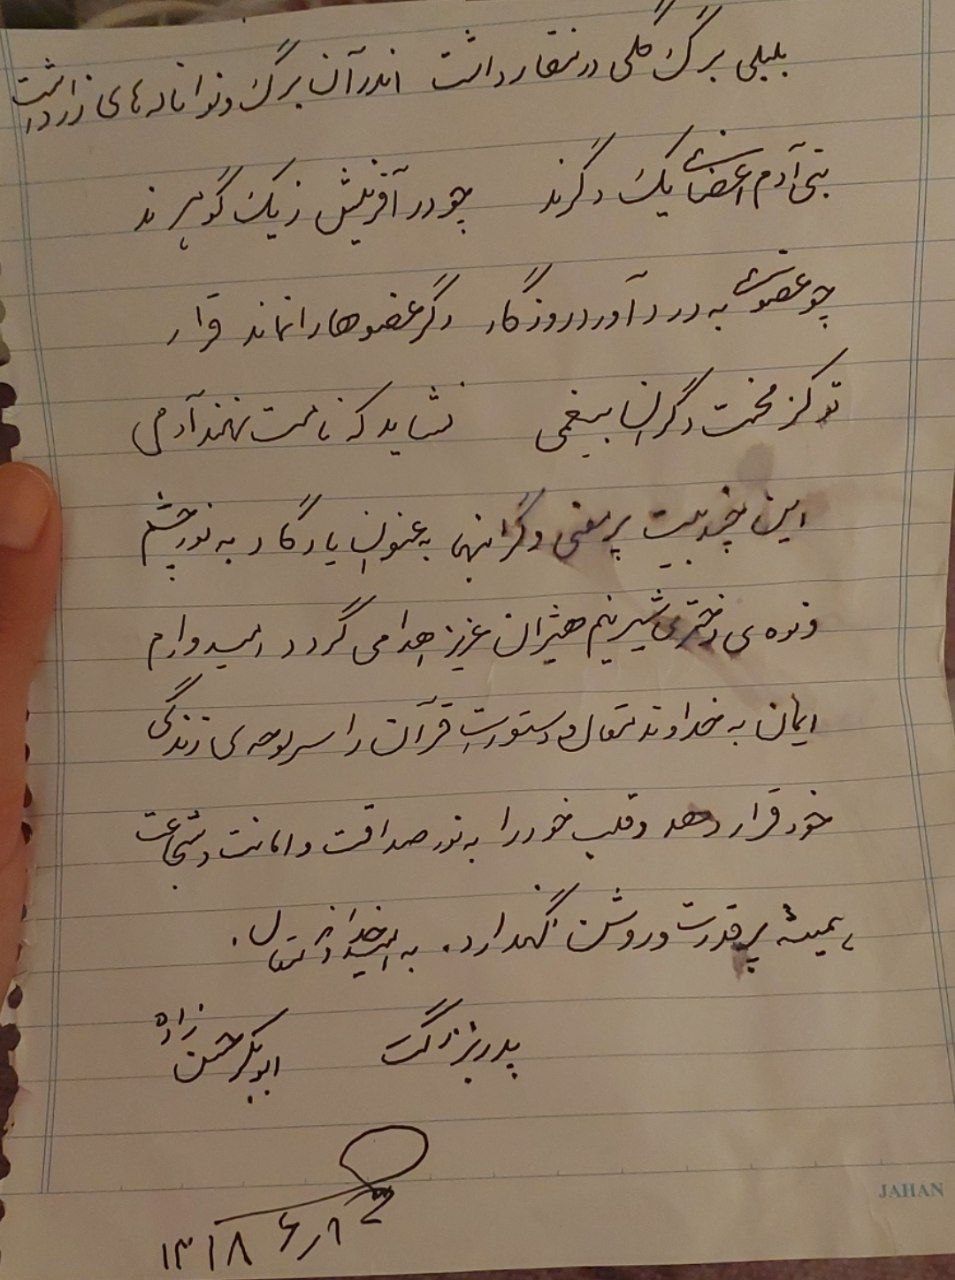 بلبلی برگ گلی در منقار داشت اندر آن برگ و نوا ناله های زار داشت
بنی آدم اعضای یک دگرند چو در آفرینش ز یک گوهرند
چو عضوی به درد آورد روزگار دگر عضوها را نماند قرار
تو کز محنت دگران بیغمی نشاید که نامت نهند آدمی
این چند بیت پر معنی و گرانبها به عنوان یادگار به نور چشم
نوه ی دختری شیرینم هیژان عزیز اهدا می گردد امیدوارم
ایمان به خداوند متعال و دستورات قرآن را سرلوحه ی زندگی
خود قرار دهد و قلب خود را به نور صداقت و امانت و شجاعت
همیشه پر قدرت و روشن نگهدارد. به امید خداوند متعال.
پدر بزرگت ابوبکر حسن زاده
JAHAN